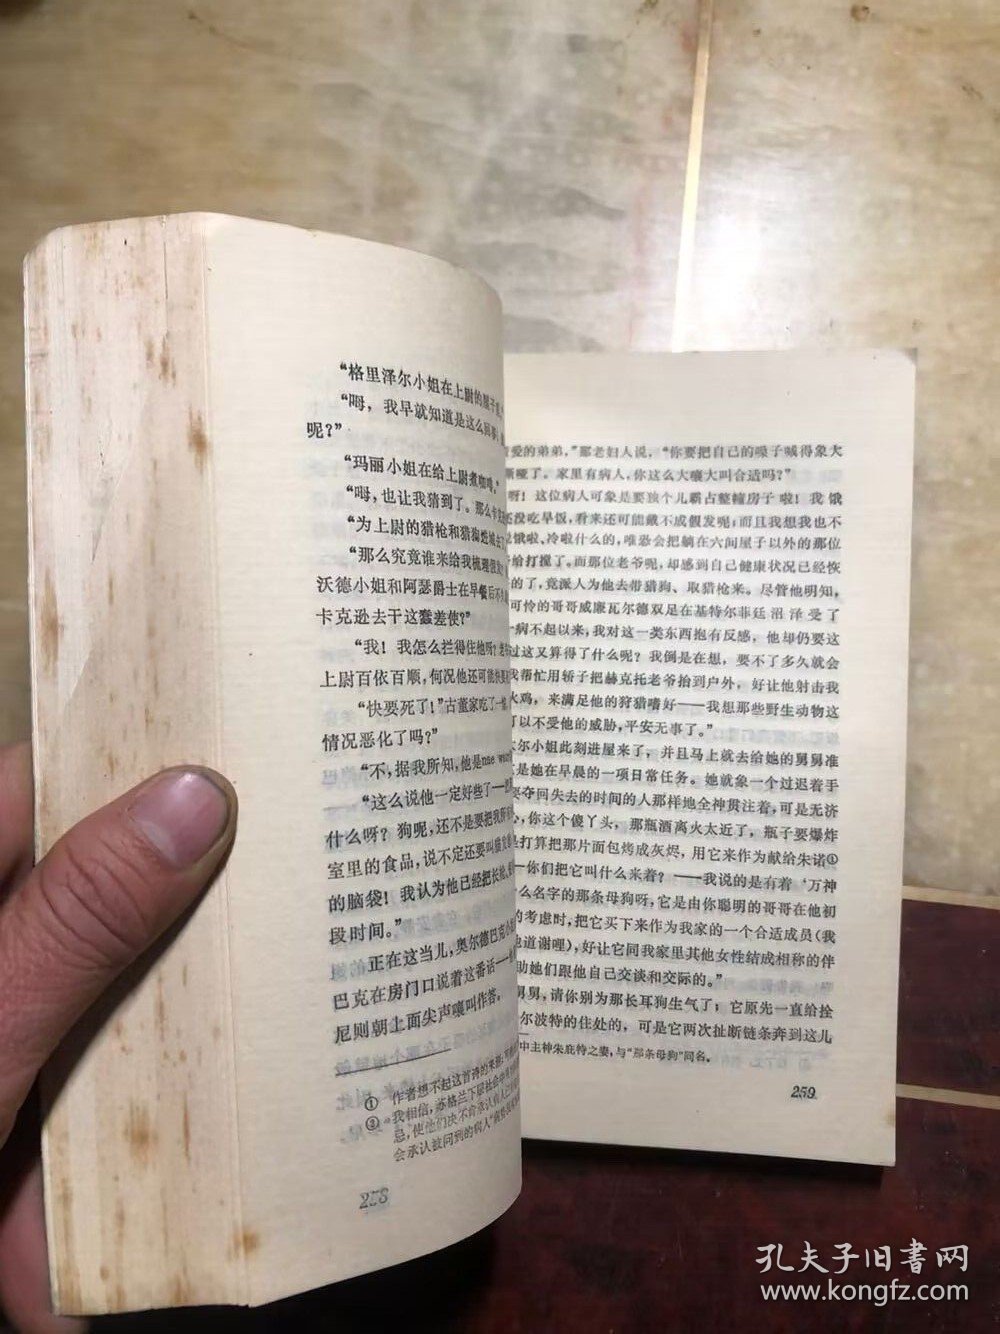 “格里泽尔小姐在上尉的屋子里
“呣，我早就知道是这么回事！
呢？”
“玛丽小姐在给上尉煮咖啡。”
“呣，也让我猜到了。那么卡克
“为上尉的猎枪和猎狗
“那么究竟谁来给我梳理假发
沃德小姐和阿瑟爵士在早餐后不久
卡克逊去干这蠢差使？”
“我！我怎么拦得住他呀？
上尉百依百顺，何况他还可能快要
“快要死了！”古董家吃了一惊
情况恶化了吗？”
“不，据我所知，他是nae waur
“这么说他一定好些了——
什么呀？狗呢，还不是要把我所
室里的食品，说不定还要叫猫
的脑袋！我认为他已经把长枪
段时间。”
正在这当儿，奥尔德巴克
巴克在房门口说着这番话——
尼则朝上面尖声嚷叫作答。
① 作者想不起这首诗的来源
② “我相信，苏格兰下层社会
忌，使他们决不肯承认病人
会承认被问到的病人“病势
258
爱的弟弟，”那老妇人说，“你要把自己的嗓子喊得象大
嘶哑了。家里有病人，你这么大嚷大叫合适吗？”
呀！这位病人可象是要独个儿霸占整幢房子啦！我饿
还没吃早饭，看来还可能戴不成假发呢；而且我想我也不
说饿啦，冷啦什么的，唯恐会把躺在六间屋子以外的那位
给打搅了。而那位老爷呢，却感到自己健康状况已经恢
的了，竟派人为他去带猎狗、取猎枪来。尽管他明知，
可怜的哥哥威廉瓦尔德双足在基特尔菲廷沼泽受了
一病不起以来，我对这一类东西抱有反感，他却仍要这
过这又算得了什么呢？我倒是在想，要不了多久就会
我帮忙用轿子把赫克托老爷抬到户外，好让他射击我
火鸡，来满足他的狩猎嗜好——我想那些野生动物这
可以不受他的威胁，平安无事了。”
尔小姐此刻进屋来了，并且马上就去给她的舅舅准
是她在早晨的一项日常任务。她就象一个过迟着手
要夺回失去的时间的人那样地全神贯注着，可是无济
心，你这个傻丫头，那瓶酒离火太近了，瓶子要爆炸
是打算把那片面包烤成灰烬，用它来作为献给朱诺①
——你们把它叫什么来着？——我说的是有着‘万神
么名字的那条母狗呀，它是由你聪明的哥哥在他初
的考虑时，把它买下来作为我家的一个合适成员（我
他道谢哩），好让它同我家里其他女性结成相称的伴
助她们跟他自己交谈和交际的。”
舅舅，请你别为那长耳狗生气了；它原先一直给拴
尔波特的住处的，可是它两次扯断链条奔到这儿
中主神朱庇特之妻，与“那条母狗”同名。
259
孔夫子旧書网
www.kongfz.com